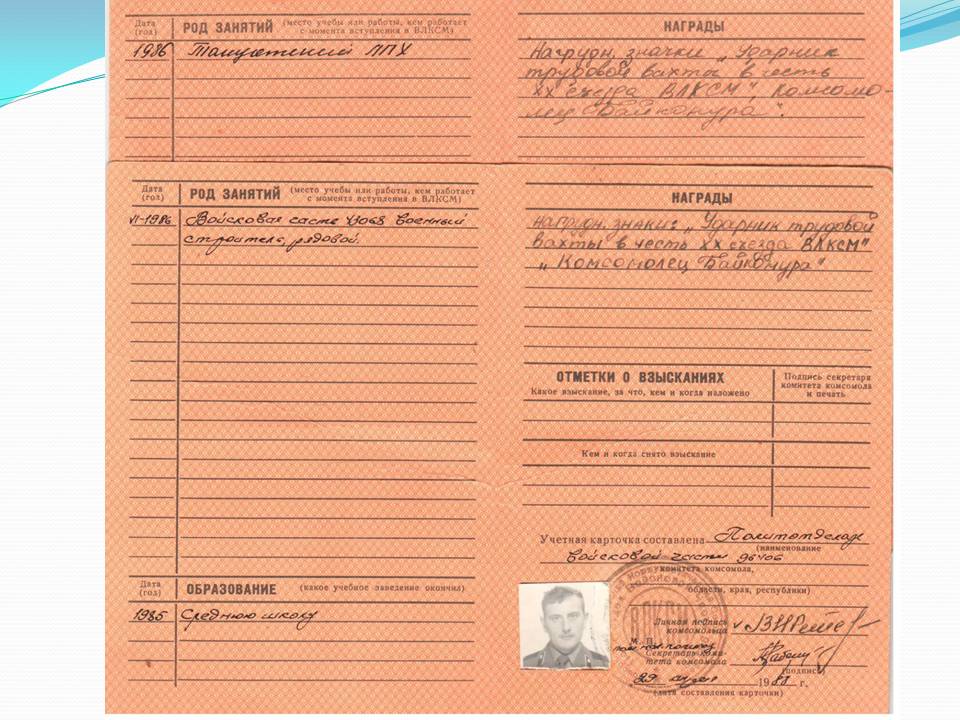 Дата (год) РОД ЗАНЯТИЙ (место учебы или работы, кем работает с момента вступления в ВЛКСМ)
1986 ЛПХ
НАГРАДЫ
Нагрудн. значки „Ударник
трудовой вахты в честь
XX съезда ВЛКСМ", Комсомо-
лец Байконура".
Дата (год) РОД ЗАНЯТИЙ (место учебы или работы, кем работает с момента вступления в ВЛКСМ)
VI-1986 Войсковая часть военный
строитель, рядовой.
НАГРАДЫ
Нагрудн. знаки: „Ударник трудовой
вахты в честь XX съезда ВЛКСМ"
„Комсомолец Байконура"
ОТМЕТКИ О ВЗЫСКАНИЯХ
Какое взыскание, за что, кем и когда наложено
Подпись секретаря
комитета комсомола
и печать
Кем и когда снято взыскание
Учетная карточка составлена Политотделом
(наименование
войсковой части 96406
комитета комсомола,
области, края, республики)
Дата (год) ОБРАЗОВАНИЕ (какое учебное заведение окончил)
1985 Среднюю школу
ВЛКСМ
Личная подпись
комсомольца
М. П.
Секретарь коми-
тета комсомола
(подпись)
29 1988 г.
(дата составления карточки)